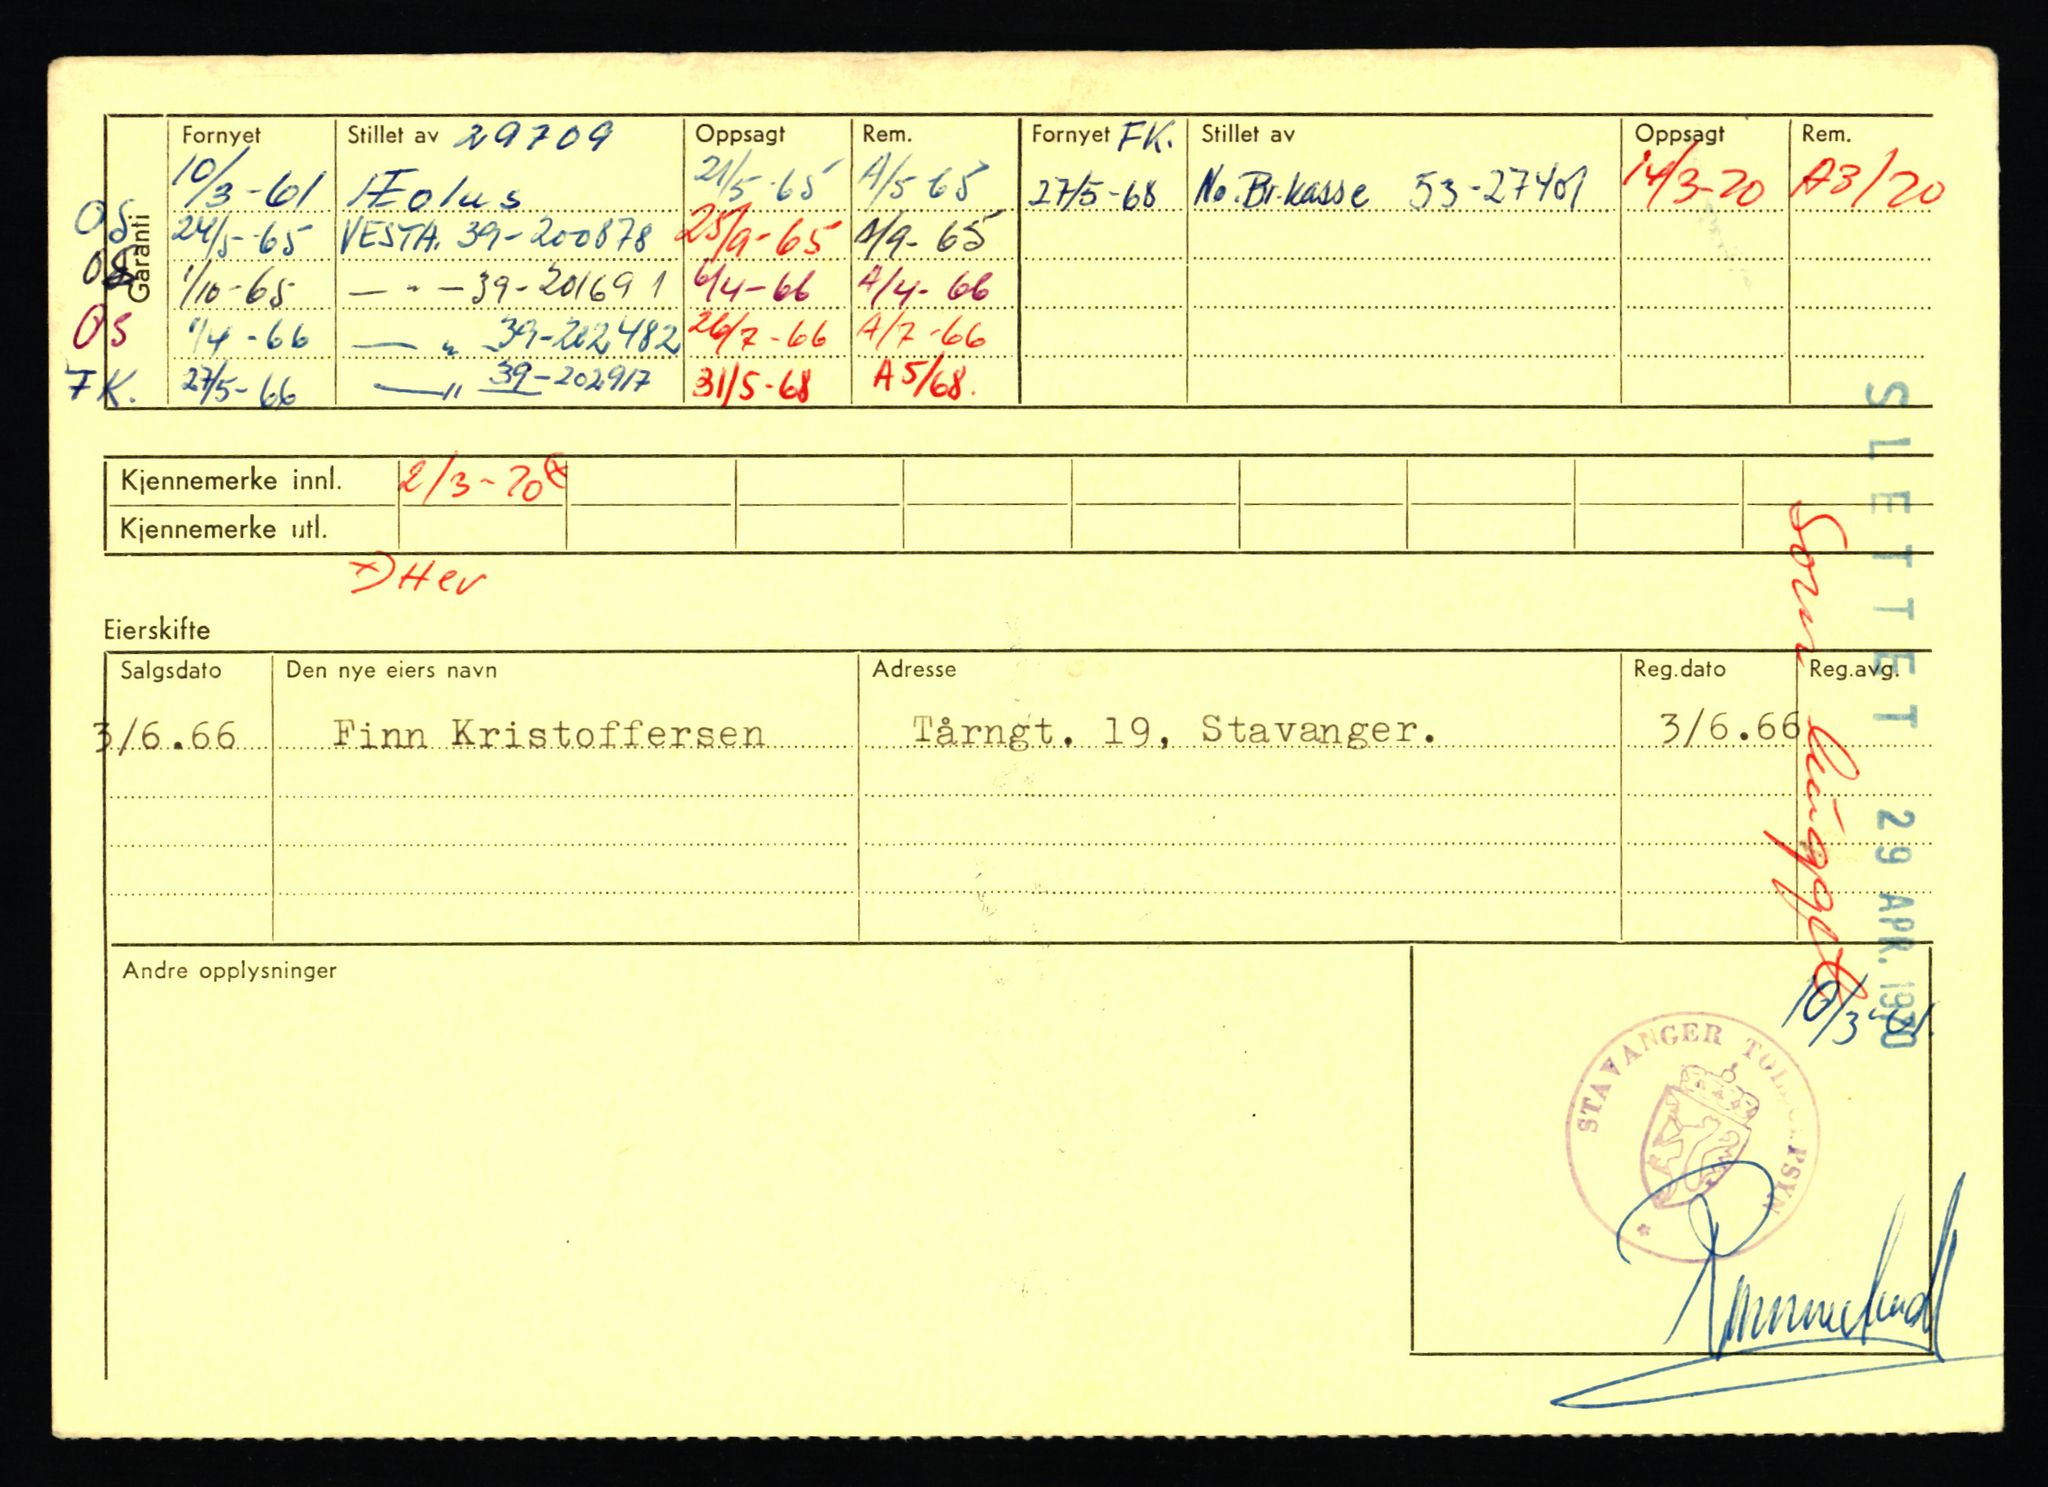 Garanti
Fornyet Stillet av 29709 Oppsagt Rem. Fornyet FK. Stillet av Oppsagt Rem.
10/3-61 Æolus 21/5-65 A/5 65 27/5-68 No.Br.kasse 53-27401 14/3-70 A3/70
OS 24/5-65 VESTA. 39-200878 25/9-65 A/9-65
OS 1/10-65 — " — 39-201691 6/4-66 A/4-66
OS 1/4-66 — " 39-202482 26/7-66 A/7-66
FK. 27/5-66 — " 39-202917 31/5-68 A5/68.
Kjennemerke innl. 2/3-70 x)
Kjennemerke utl.
x) Her
Eierskifte
Salgsdato Den nye eiers navn Adresse Reg.dato Reg.avg.
3/6.66 Finn Kristoffersen Tårngt. 19, Stavanger. 3/6.66
Andre opplysninger
SLETTET 29 APR. 1970
Som
10/3-61.
STAVANGER TOLLOPPSYN